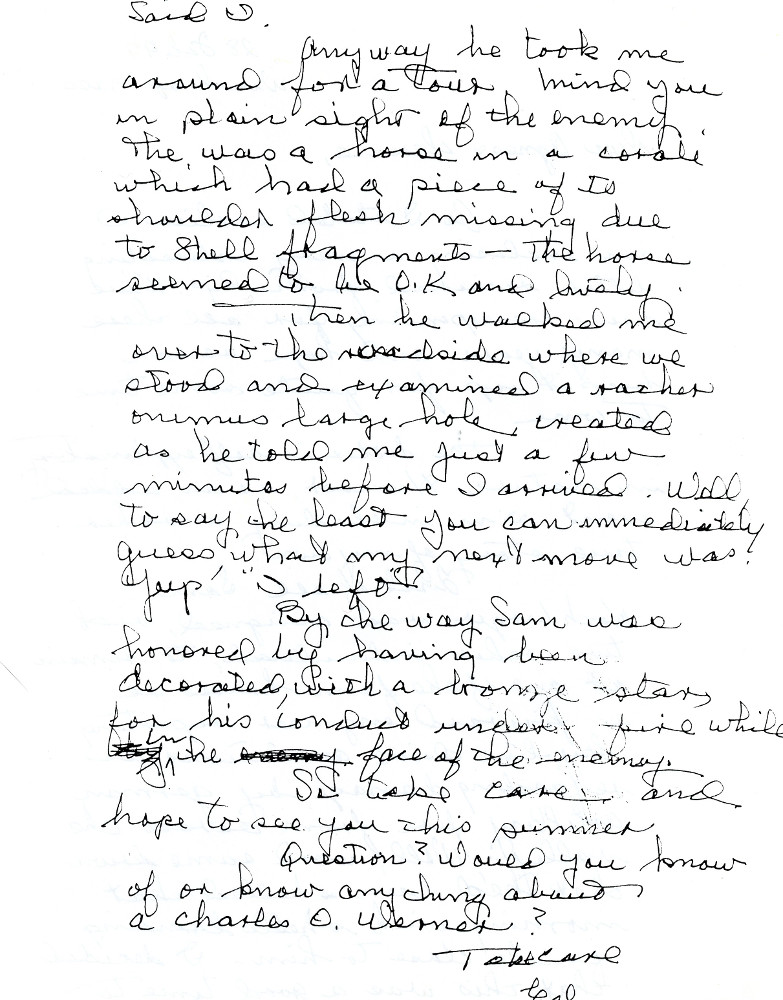 Said I.
Anyway he took me
around for a Tour, mind you
in plain sight of the enemy.
The was a horse in a corale
which had a piece of its
shoulder flesh missing due
to Shell fragments — The horse
seemed to be O.K and lively.
Then he walked me
over to the roadside where we
stood and examined a rather
onimus large hole, created
as he told me just a few
minutes before I arrived. Well,
to say the least you can immediately
guess what my next move was!
Yup! "I left"!
By the way Sam was
honored by having been
decorated, with a bronze star,
for his conduct under fire while
in the face of the enemy.
So take care and
hope to see you this summer
Question? Would you know
of or know anything about
a Charles O. Werner?
Take care